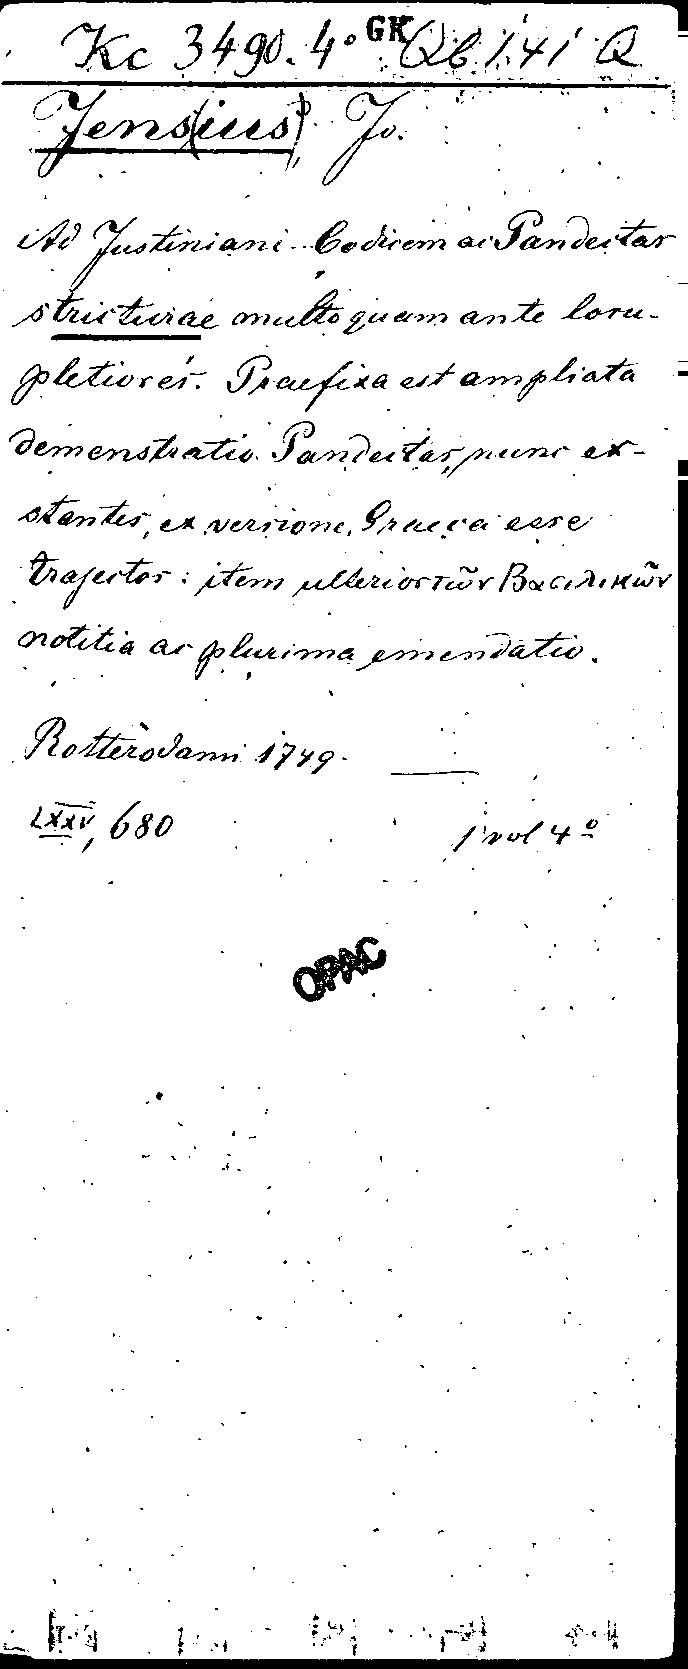 Kc 3490. 4° GK Qb 141 Q
Jens(ius), Jo.
Ad Justiniani Codicem ac Pandectas
stricturae multo quam ante locu-
pletiores. Praefixa est ampliata
demenstratio Pandectas, nunc ex-
stantes, ex versione Graeca esse
trajectas: item ulterior τῶν Βασιλικῶν
notitia ac plurima emendatio.
Rotterodami 1749.
LXXV, 680 1 vol 4°
OPAC